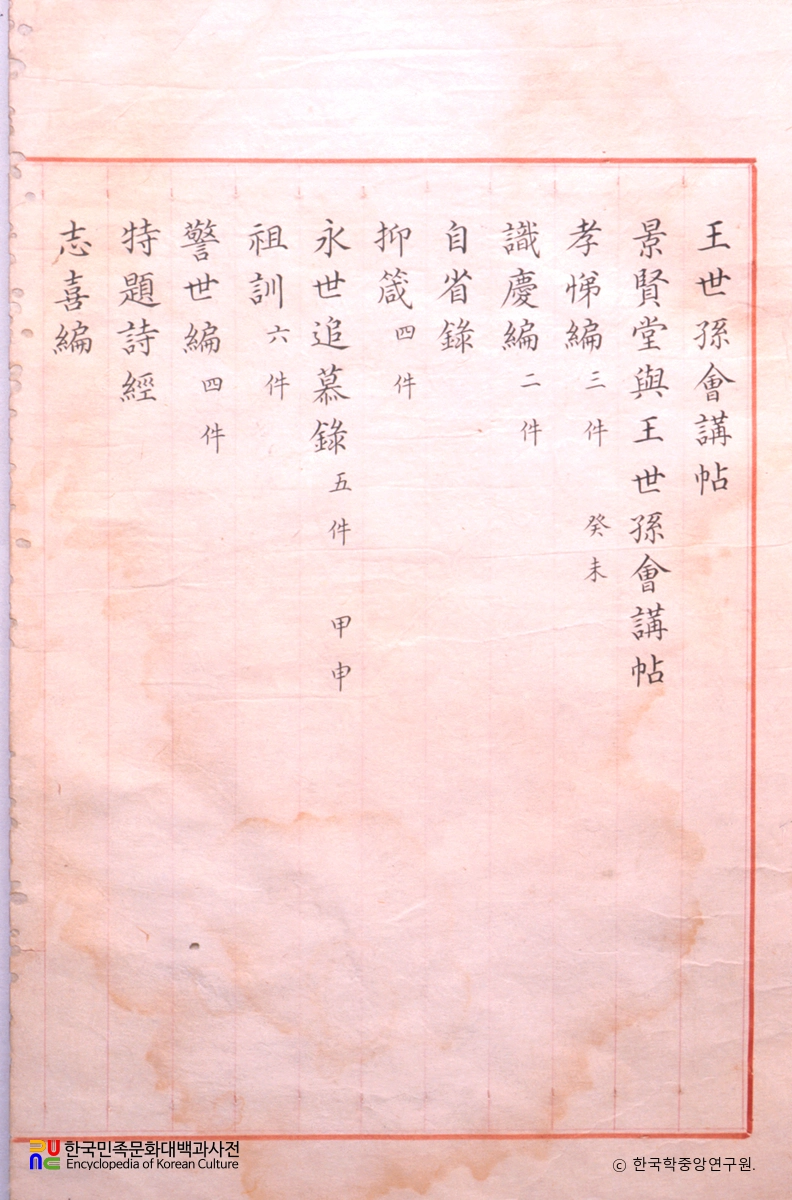 王世孫會講帖
景賢堂與王世孫會講帖
孝悌編 三件 癸未
識慶編 二件
自省錄
抑箴 四件
永世追慕錄 五件 甲申
祖訓 六件
警世編 四件
特題詩經
志喜編
한국민족문화대백과사전
Encyclopedia of Korean Culture
ⓒ 한국학중앙연구원.